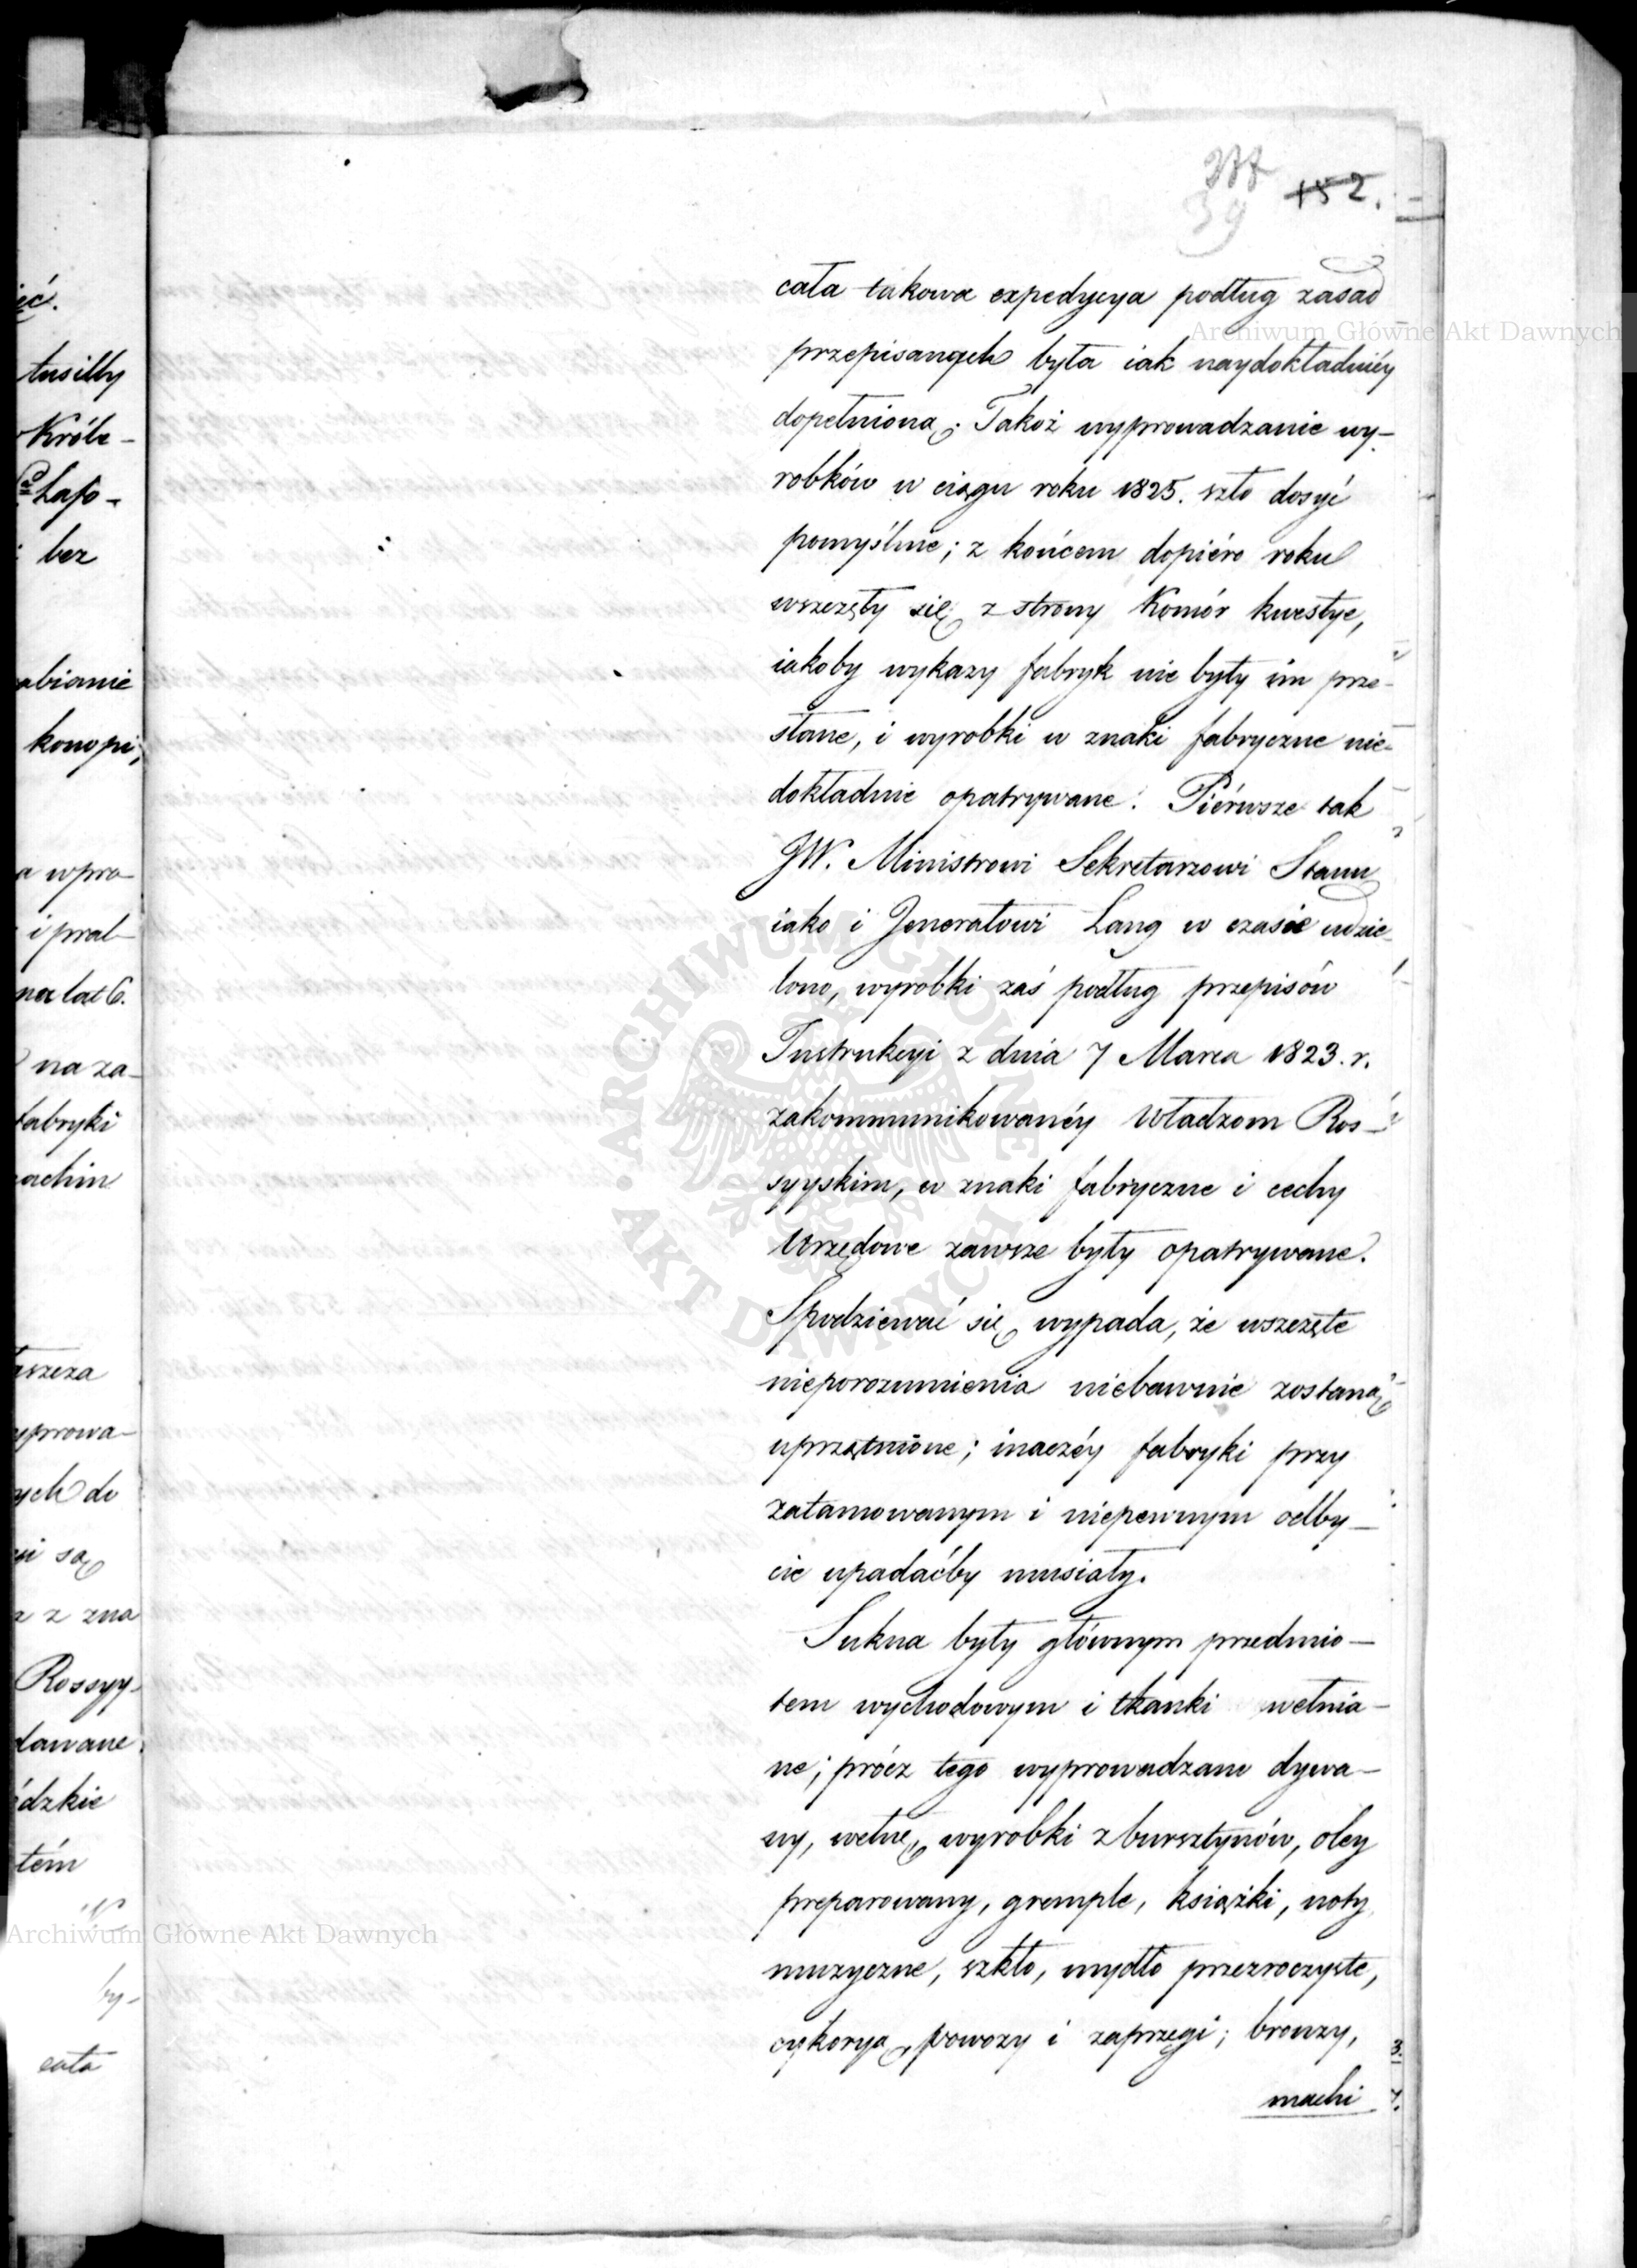 152.
39
cała takowa expedycya podług zasad
przepisanych była iak naydokładniéy
dopełniona. Takoż wyprowadzanie wy-
robków w ciągu roku 1825. szło dosyć
pomyślnie; z końcem dopiéro roku
wszczęły się z strony Komór kwestye,
iakoby wykazy fabryk nie były im prze-
słane, i wyrobki w znaki fabryczne nie-
dokładnie opatrywane. Piérwsze tak
JW. Ministrowi Sekretarzowi Stanu
iako i Jenerałowi Lang w czasie udzie-
lono, wyrobki zaś podług przepisów
Instrukcyi z dnia 7 Marca 1823. r.
zakommunikowanéy Władzom Ros-
syyskim, w znaki fabryczne i cechy
Urzędowe zawsze były opatrywane.
Spodziewać się wypada, że wszczęte
nieporozumienia niebawnie zostaną
uprzątnione; inaczéy fabryki przy
zatamowanym i niepewnym odby-
cie upadaćby musiały.
Sukna były głównym przedmio-
tem wychodowym i tkanki wełnia-
ne; prócz tego wyprowadzano dywa-
ny, wełnę, wyrobki z bursztynów, oley
preparowany, gremple, książki, noty
muzyczne, szkło, mydło przezroczyste,
cykorya, powozy i zaprzęgi; bronzy,
machi
tusilby
Króle-
Lafo-
bez
abianie
konopi,
a wpro-
i pral-
na lat 6.
na za-
fabryki
achin
yprowa-
ych do
są
z zna
Rossyy-
dawane
ódzkie
tém
by-
cała
Archiwum Główne Akt Dawnych
Archiwum Główne Akt Dawnych
ARCHIWUM GŁÓWNE AKT DAWNYCH